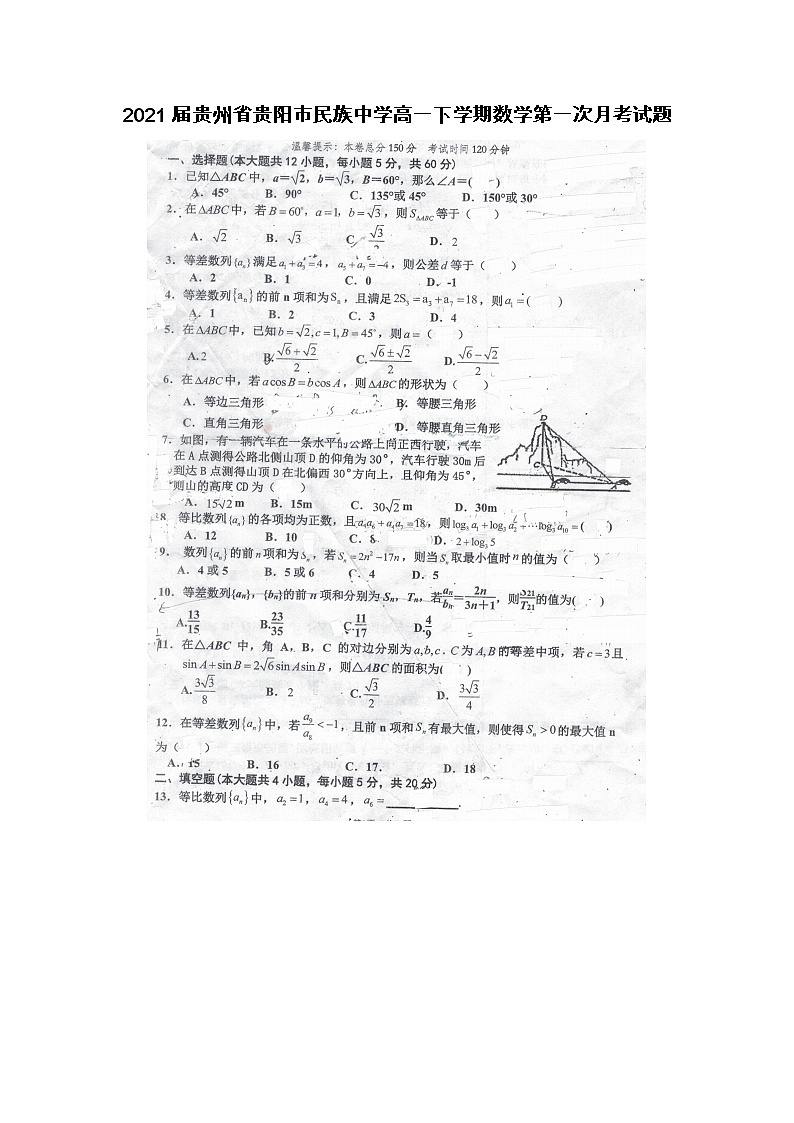 2021届贵州省贵阳市民族中学高一下学期数学第一次月考试题
温馨提示：本卷总分150分 考试时间120分钟
一、选择题(本大题共12小题，每小题5分，共60分)
1．已知△ABC中，a＝√2，b＝√3，B＝60°，那么∠A＝( )
A．45° B．90° C．135°或45° D．150°或30°
2．在△ABC中，若B＝60°，a＝1，b＝√3，则S△ABC等于（ ）
A．√2 B．√3 C．√3/2 D．2
3．等差数列{aₙ}满足a₁+a₃=4，a₅+a₇=-4，则公差d等于（ ）
A．2 B．1 C．0 D．-1
4．等差数列{aₙ}的前n项和为Sₙ，且满足2S₃=a₃+a₇=18，则a₁=( )
A．1 B．2 C．3 D．4
5．在△ABC中，已知b=√2,c=1,B=45°，则a=（ ）
A.2 B.(√6+√2)/2 C.(√6±√2)/2 D.(√6-√2)/2
6．在△ABC中，若acosB=bcosA，则△ABC的形状为（ ）
A．等边三角形 B．等腰三角形
C．直角三角形 D．等腰直角三角形
7．如图，有一辆汽车在一条水平的公路上向正西行驶，汽车
在A点测得公路北侧山顶D的仰角为30°，汽车行驶30m后
到达B点测得山顶D在北偏西30°方向上，且仰角为45°，
则山的高度CD为（ ）
A．15√2 m B．15m C．30√2 m D．30m
D
C
B
A
8 等比数列{aₙ}的各项均为正数，且 =18，则log₃a₁+log₃a₂+…log₃a₁₀=( )
A．12 B．10 C．8 D．2+log₃5
9．数列{aₙ}的前n项和为Sₙ，若Sₙ=2n²-17n，则当Sₙ取最小值时n的值为（ ）
A．4或5 B．5或6 C．4 D．5
10．等差数列{aₙ}，{bₙ}的前n项和分别为Sₙ，Tₙ，若aₙ/bₙ=2n/(3n+1)，则S21/T21的值为( )
A.13/15 B.23/35 C.11/17 D.4/9
11．在△ABC中，角A，B，C的对边分别为a,b,c．C为A,B的等差中项，若c=3且
sinA+sinB=2√6sinAsinB，则△ABC的面积为( )
A.3√3/8 B．2 C.√3/2 D．3√3/4
12．在等差数列{aₙ}中，若a₉/a₈<-1，且前n项和Sₙ有最大值，则使得Sₙ>0的最大值n
为（ ）
A．15 B．16 C．17. D．18
二、填空题(本大题共4小题，每小题5分，共20分)
13．等比数列{aₙ}中，a₂=1，a₄=4，a₆=________.